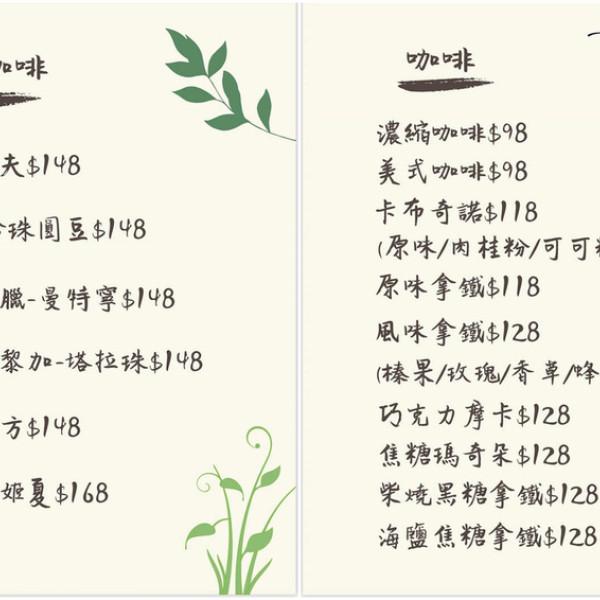 咖啡
夫$148
珍珠圓豆$148
臘-曼特寧$148
黎加-塔拉珠$148
方$148
姬夏$168
咖啡
濃縮咖啡$98
美式咖啡$98
卡布奇諾$118
(原味/肉桂粉/可可粉
原味拿鐵$118
風味拿鐵$128
(榛果/玫瑰/香草/蜂
巧克力摩卡$128
焦糖瑪奇朵$128
柴燒黑糖拿鐵$128
海鹽焦糖拿鐵$128